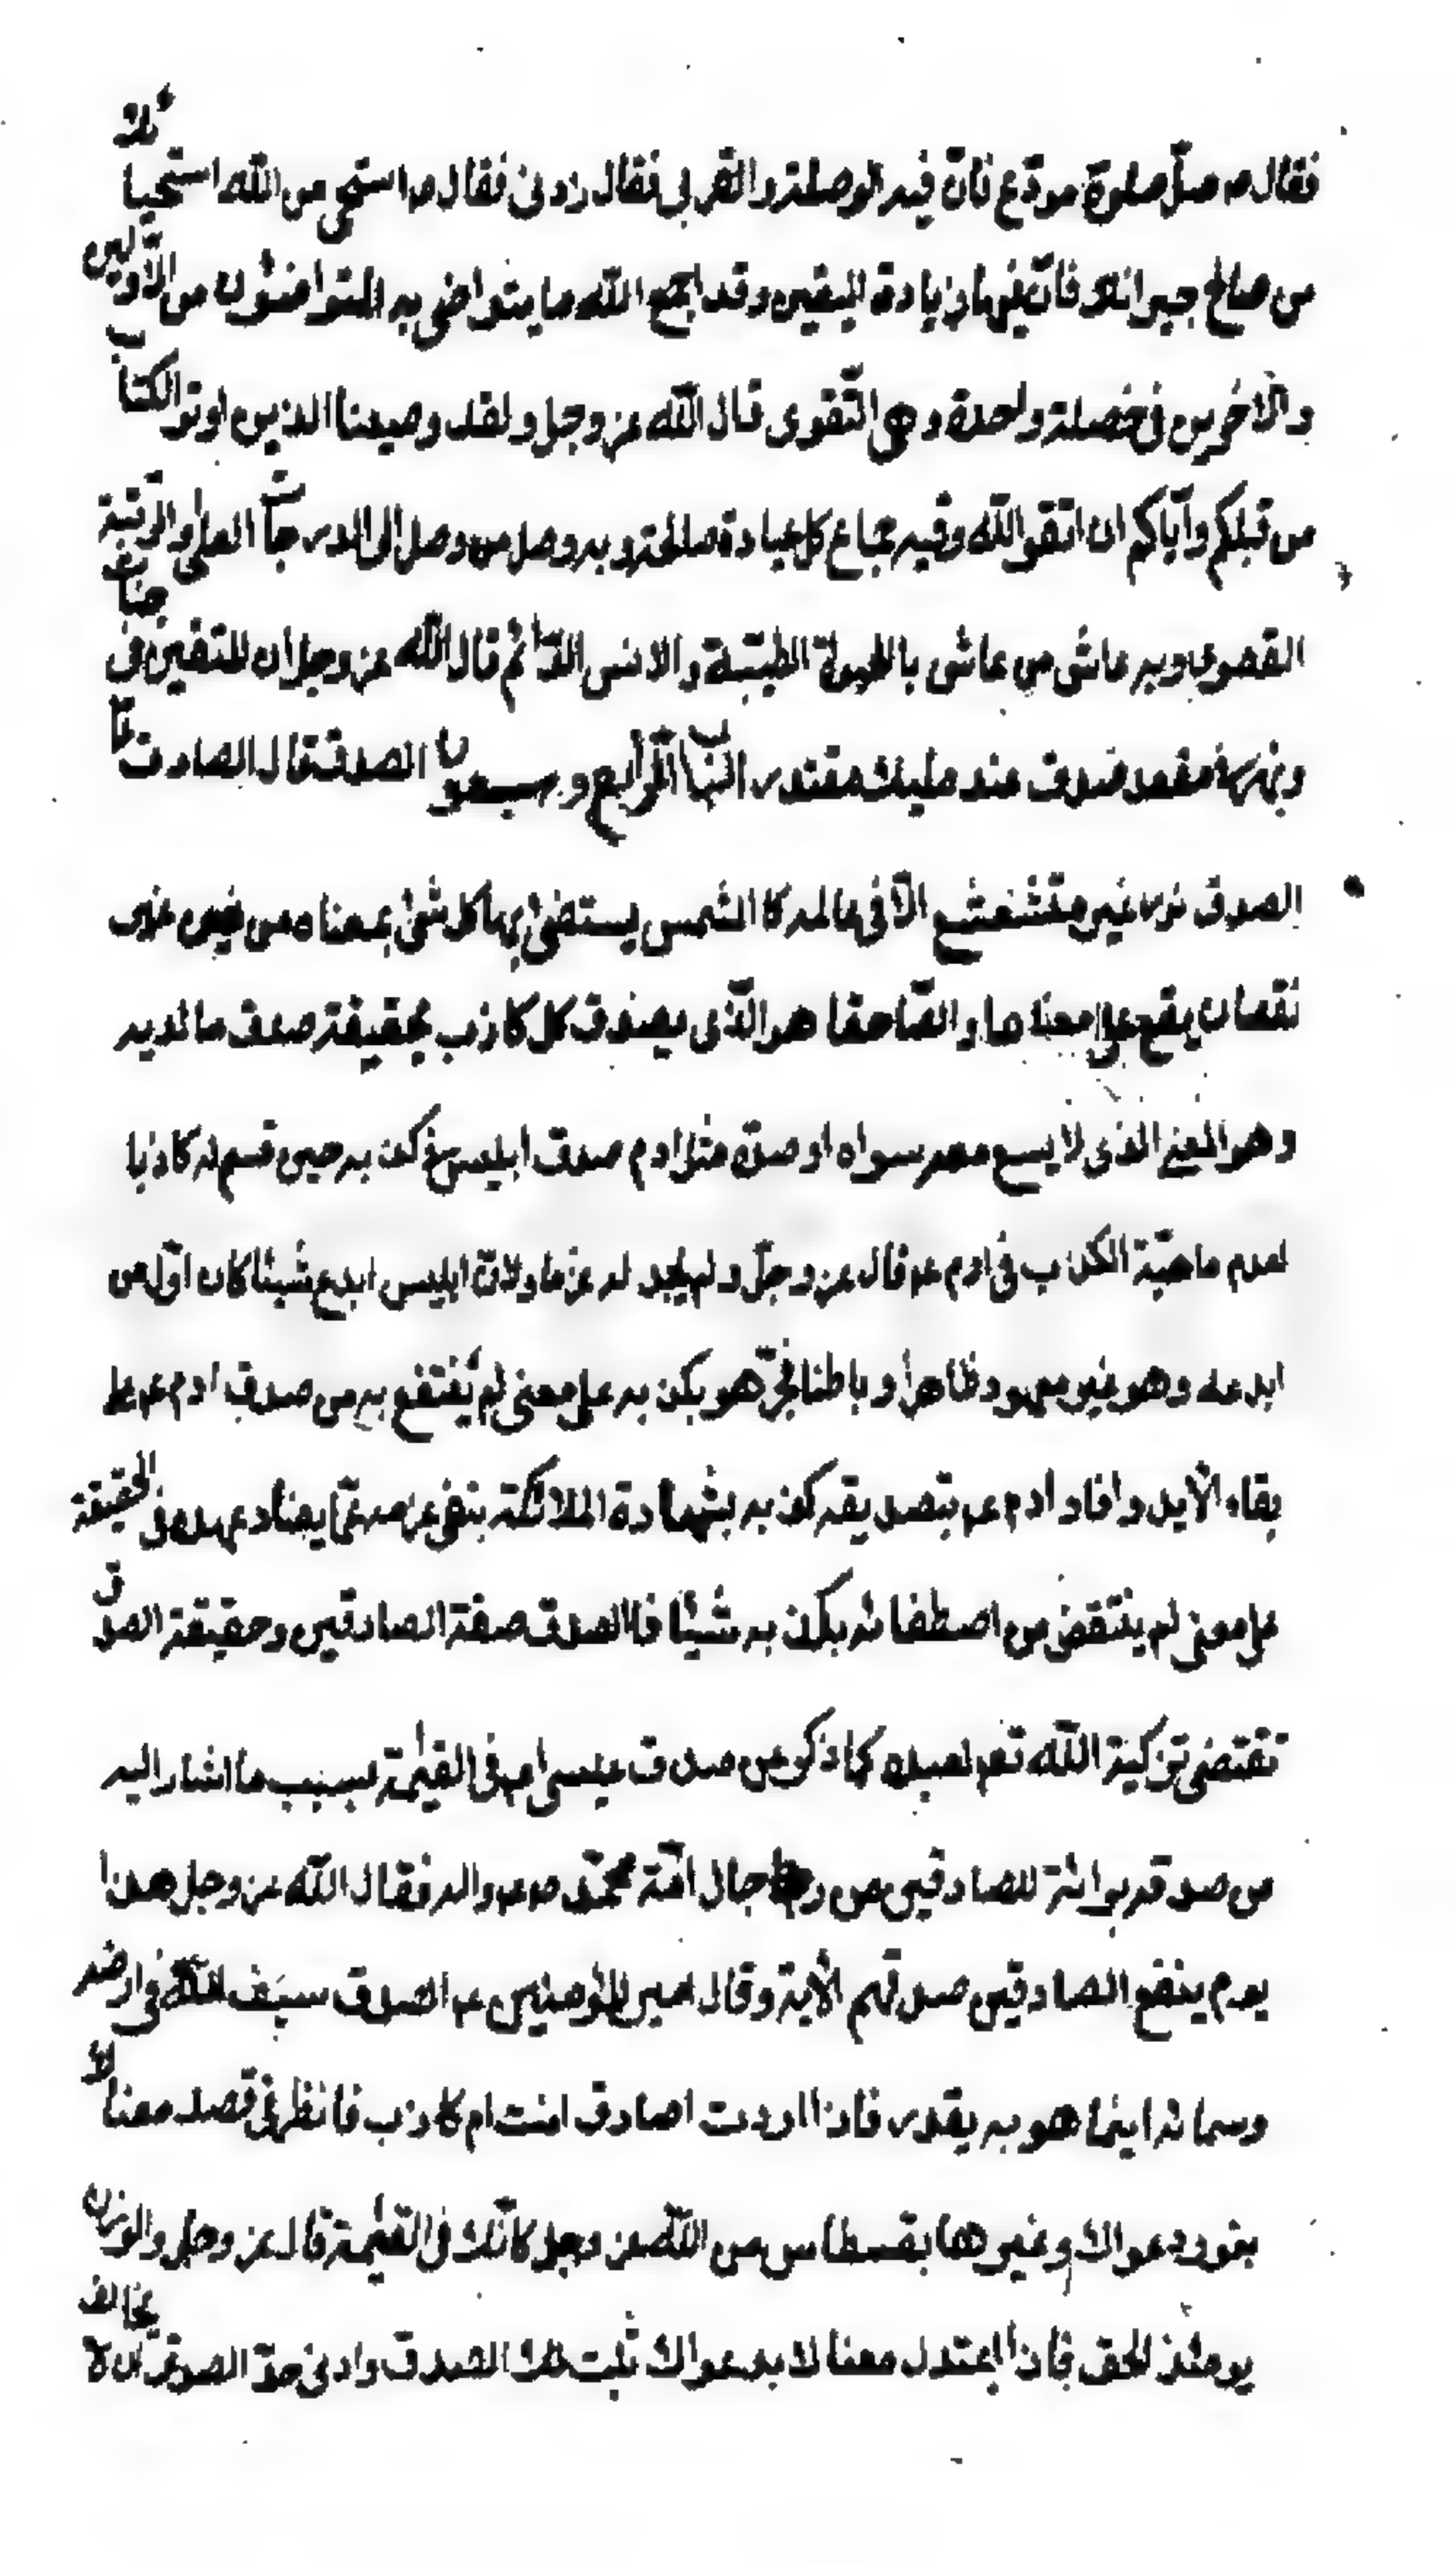 فقال ص صل صلوة مودّع فانّ فيه الوصلة والقربى فقال زدنى فقال ص استحى من الله استحياءك
من صالح جيرانك فانّ فيها زيادة اليقين وقد اجمع الله ما يتواصى به المتواصون من الاوّلين
والاخرين فى خصلة واحدة وهى التّقوى قال الله عز وجل ولقد وصينا الذين اوتوا الكتاب
من قبلكم وايّاكم ان اتقوا الله وفيه جماع كل عبادة صالحة وبه وصل من وصل الى الدرجات العلى والرتبة
القصوى وبه عاش من عاش بالحيوة الطيّبة والانس الدّائم قال الله عز وجل ان المتقين فى جنات
ونهر فى مقعد صدق عند مليك مقتدر الباب الرّابع وسبعون الصدق قال الصادق ع
الصدق نور غير متشعشع الّا فى عالمه كالشمس يستضئ بها كل شئ بمعناه من غير
نقصان يقع على معناها والصّادق حقا هو الّذى يصدق كل كاذب بحقيقة صدق ما لديه
وهو المعنى الذى لا يسع معه سواه او ضدّه مثل ادم صدق ابليس فى كذبه حين قسم له كاذبا
لعدم ماهيّة الكذب فى ادم عم قال عز وجلّ ولم نجد له عزما ولانّ ابليس ابدع شيئا كان اوّل من
ابدعه وهو غير معهود ظاهرا وباطنا فخسر هو بكذبه على معنى لم ينتفع به من صدق ادم عم على
بقاء الابد وافاد ادم عم بتصديقه كذبه بشهادة الملائكة بنفى عزمه عمّا يضاد عهده فى الحقيقة
على معنى لم ينتقض من اصطفائه بكذبه شيئا فالصدق صفة الصادقين وحقيقة الصدق
تقتضى تزكية الله تعم لعبده كما ذكر عن صدق عيسى عم فى القيمة بسبب ما اشار اليه
من صدقه براءة للصادقين من رجال امّة محمّد ص ع واله فقال الله عز وجل هذا
يوم ينفع الصادقين صدقهم الاية وقال امير المؤمنين عم الصدق سيف الله فى ارضه
وسمائه اينما هو به يقدر فاذا اردت اصادق انت ام كاذب فانظر فى قصد معناك
وغور دعواك وغيرها بقسطاس من الله عز وجل كانّك فى القيمة قال عز وجل والوزن
يومئذ الحق فاذا اعتدل معناك بدعواك ثبت لك الصدق وادنى حدّ الصدق ان لا يخالف